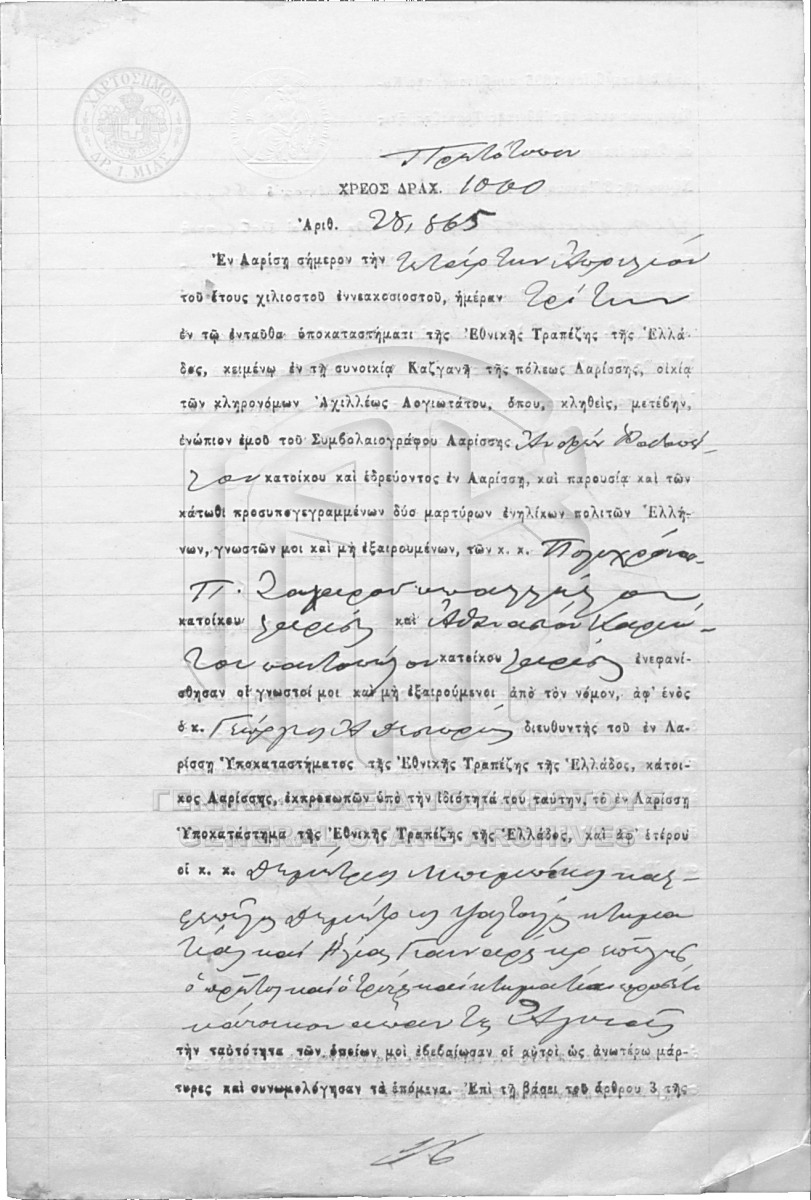 ΧΑΡΤΟΣΗΜΟΝ
ΔΡ. 1. ΜΙΑΣ
Πρωτότυπον
ΧΡΕΟΣ ΔΡΑΧ. 1000
Ἀριθ. 28,865
Ἐν Λαρίσῃ σήμερον τὴν τετάρτην Ἀπριλίου
τοῦ ἔτους χιλιοστοῦ ἐννεακοσιοστοῦ, ἡμέραν Τρίτην
ἐν τῷ ἐνταῦθα ὑποκαταστήματι τῆς Ἐθνικῆς Τραπέζης τῆς Ἑλλά-
δος, κειμένῳ ἐν τῇ συνοικίᾳ Καζγανῆ τῆς πόλεως Λαρίσσης, οἰκίᾳ
τῶν κληρονόμων Ἀχιλλέως Λογιωτάτου, ὅπου, κληθεὶς, μετέβην,
ἐνώπιον ἐμοῦ τοῦ Συμβολαιογράφου Λαρίσσης Ἀνδρέου
κατοίκου καὶ ἑδρεύοντος ἐν Λαρίσσῃ, καὶ παρουσίᾳ καὶ τῶν
κάτωθι προσυπογεγραμμένων δύο μαρτύρων ἐνηλίκων πολιτῶν Ἑλλή-
νων, γνωστῶν μοι καὶ μὴ ἐξαιρουμένων, τῶν κ. κ. Πολυχρόνου
Π.
κατοίκου Λαρίσης καὶ Ἀθανασίου
παντοπώλου κατοίκου Λαρίσης ἐνεφανί-
σθησαν οἱ γνωστοί μοι καὶ μὴ ἐξαιρούμενοι ἀπὸ τὸν νόμον, ἀφ' ἑνὸς
ὁ κ. Γεώργιος διευθυντὴς τοῦ ἐν Λα-
ρίσσῃ Ὑποκαταστήματος τῆς Ἐθνικῆς Τραπέζης τῆς Ἑλλάδος, κάτοι-
κος Λαρίσσης, ἐκπροσωπῶν ὑπὸ τὴν ἰδιότητά του ταύτην, τὸ ἐν Λαρίσσῃ
ΓΕΝΙΚΑ ΑΡΧΕΙΑ ΤΟΥ ΚΡΑΤΟΥΣ
Ὑποκατάστημα τῆς Ἐθνικῆς Τραπέζης τῆς Ἑλλάδος, καὶ ἀφ' ἑτέρου
GENERAL STATE ARCHIVES
οἱ κ. κ. Δημήτριος
Δημήτριος κτημα
τίας καὶ Ἠλίας
ὁ πρῶτος καὶ ὁ τρίτος καὶ κτηματίαι προσέτι
κάτοικοι ἅπαντες Ἁγυιᾶς
τὴν ταὐτότητα τῶν ὁποίων μοὶ ἐβεβαίωσαν οἱ αὐτοὶ ὡς ἀνωτέρω μάρ-
τυρες καὶ συνωμολόγησαν τὰ ἑπόμενα. Ἐπὶ τῇ βάσει τοῦ ἄρθρου 3 τῆς